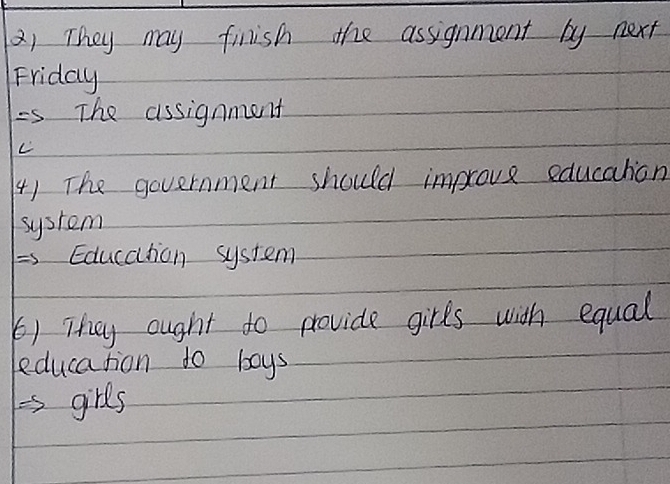 2) They may finish the assignment by next
Friday
=> The assignment
4) The government should improve education
system
=> Education system
6) They ought to provide girls with equal
education to boys
=> girls